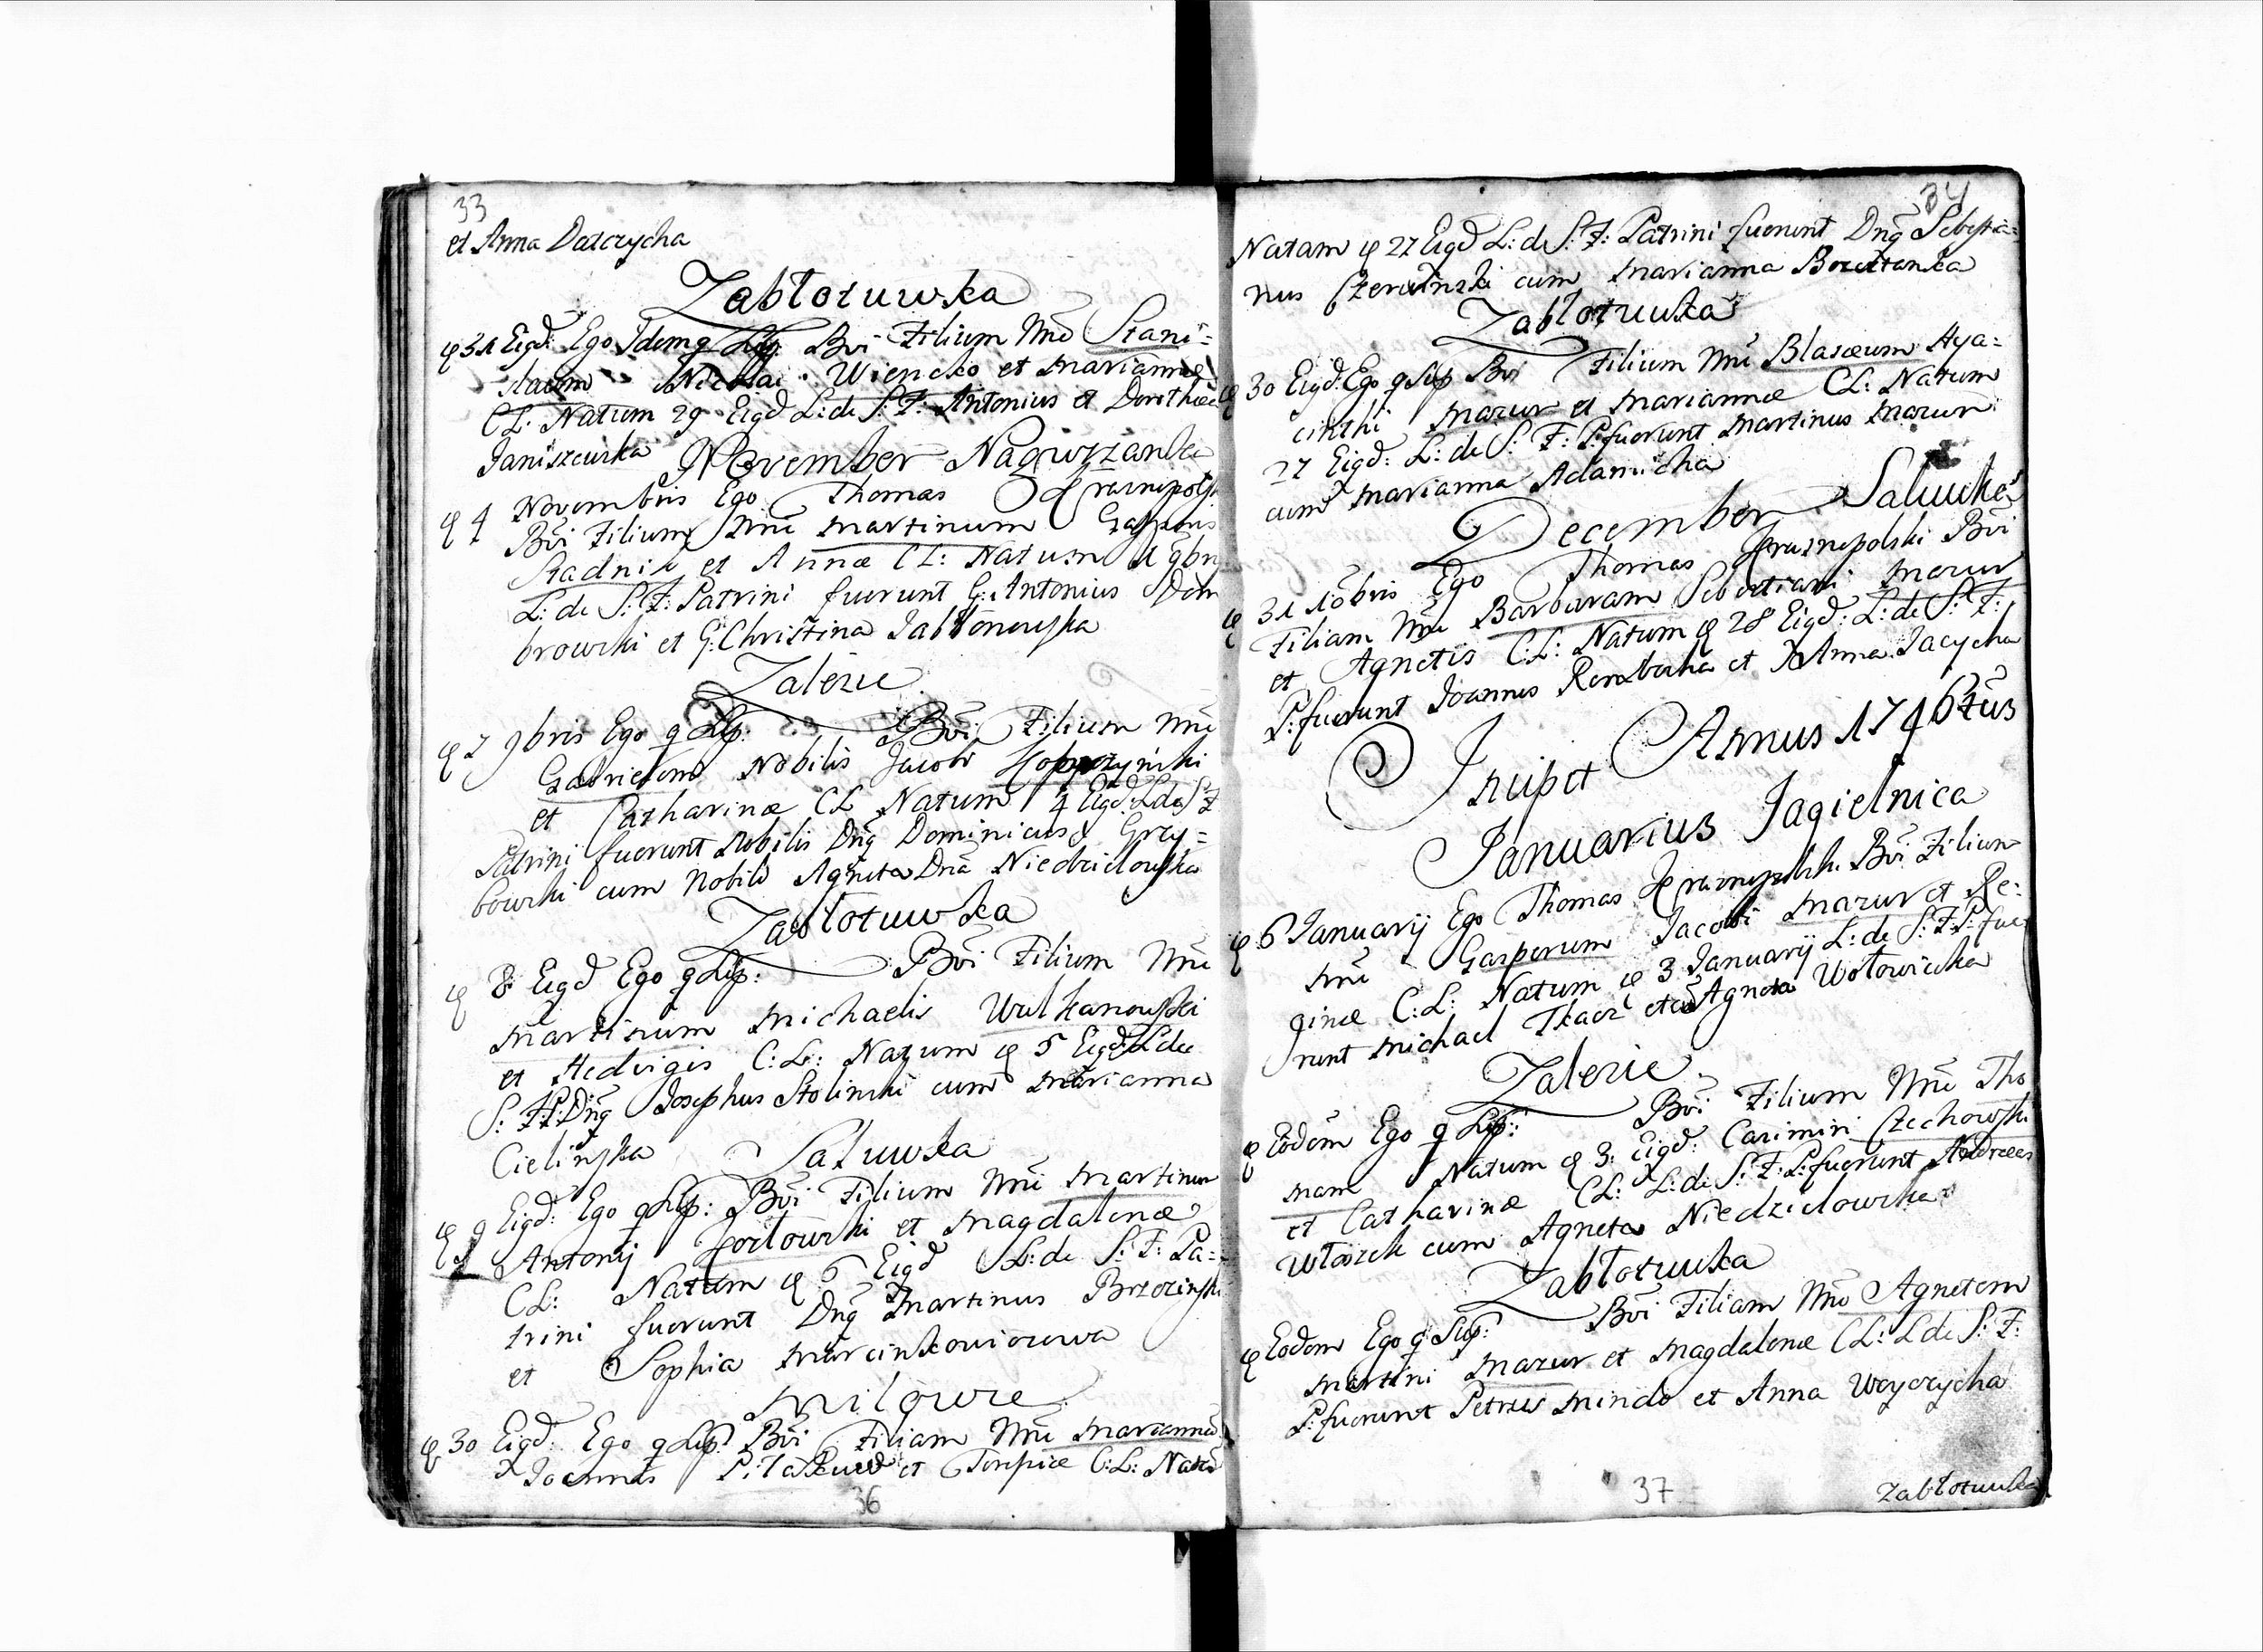 33
et Anna Datczycha
Zabłotuwka
31 Eigd: Ego Idem q Sup: Bvi Filium Nne Stani=
slaum Nicolai Wiencko et Mariannæ
CL: Natum 29 Eigd L: de S: F: Antonius et Dorothea
Janiszewska November Nagurzanka
4 Novembris Ego Thomas Krasnopolski
Bvi Filium Nne Martinum Gasparis
Stadnik et Annæ CL: Natum 1 9bris
L: de S: F: Patrini fuerunt G: Antonius Dom
browski et G: Christina Jabłonowska
Zalesie
7 9bris Ego q Sup: Bvi Filium Nne
Gabrielem Nobilis Jacobi
et Catharinæ CL Natum 4 Eigd: L de S F
Patrini fuerunt Nobilis Dnq Dominicus Grzy=
bowski cum Nobili Agneta Dna Niedzielowska
Zabłotuwka
8 Eigd Ego q Sup: Bvi Filium Nne
Martinum Michaelis Wulkanowski
et Hedvigis C: L: Natum 5 Eigd: L de
S: F: P: Dnq Josephus Stolinski cum Marianna
Cielinska Saluwka
9 Eigd: Ego q Sup: Bvi Filium Nne Martinum
Antonij Gorłowski et Magdalenæ
CL: Natum 6 Eigd L: de S: F: Pa=
trini fuerunt Dnq Martinus Brzozinski
et Sophia Marcinkowiczowa
Milowce
30 Eigd: Ego q Sup: Bvi Filiam Nne Mariannã
Joannis et C: L: Natã
36
34
Natam 27 Eigd L: de S: F: Patrini fuerunt Dnq Sebestia=
nus Czerwinski cum Marianna
Zabłotuwka
30 Eigd: Ego q Sup Bvi Filium Nne Blaseum Hya=
cinthi Mazur et Mariannæ CL: Natum
27 Eigd: L: de S: F: P: fuerunt Martinus Mazur
cum Marianna Adamicha
December Saluwka
31 10bris Ego Thomas Krasnopolski Bvi
Filiam Nne Barbaram Sebestiani Mazur
et Agnetis C: L: Natam 28 Eigd: L: de S: F:
P: fuerunt Joannes et Anna Jacycha
Incipit Annus 1746tus
Januarius Jagielnica
6 Januarij Ego Thomas Krasnopolski Bvi Filium
Nne Gasperum Jacobi Mazur et Re=
ginæ C: L: Natum 3 Januarij L: de S: F: P: fue
runt Michael Tkacz et Agneta Wołowicka
Zalesie
Eodem Ego q Sup: Bvi Filium Nne Tho
mam Natum 3: Eigd: Casimiri Czechowski
et Catharinæ CL: L: de S: F: P: fuerunt Andreas
Włoszek cum Agneta Niedzielowska
Zabłotuwka
Eodem Ego q Sup: Bvi Filiam Nne Agnetem
Martini Mazur et Magdalenæ CL: L de S: F:
P: fuerunt Petrus Mindo et Anna Wczyczycha
37
Zabłotuwka